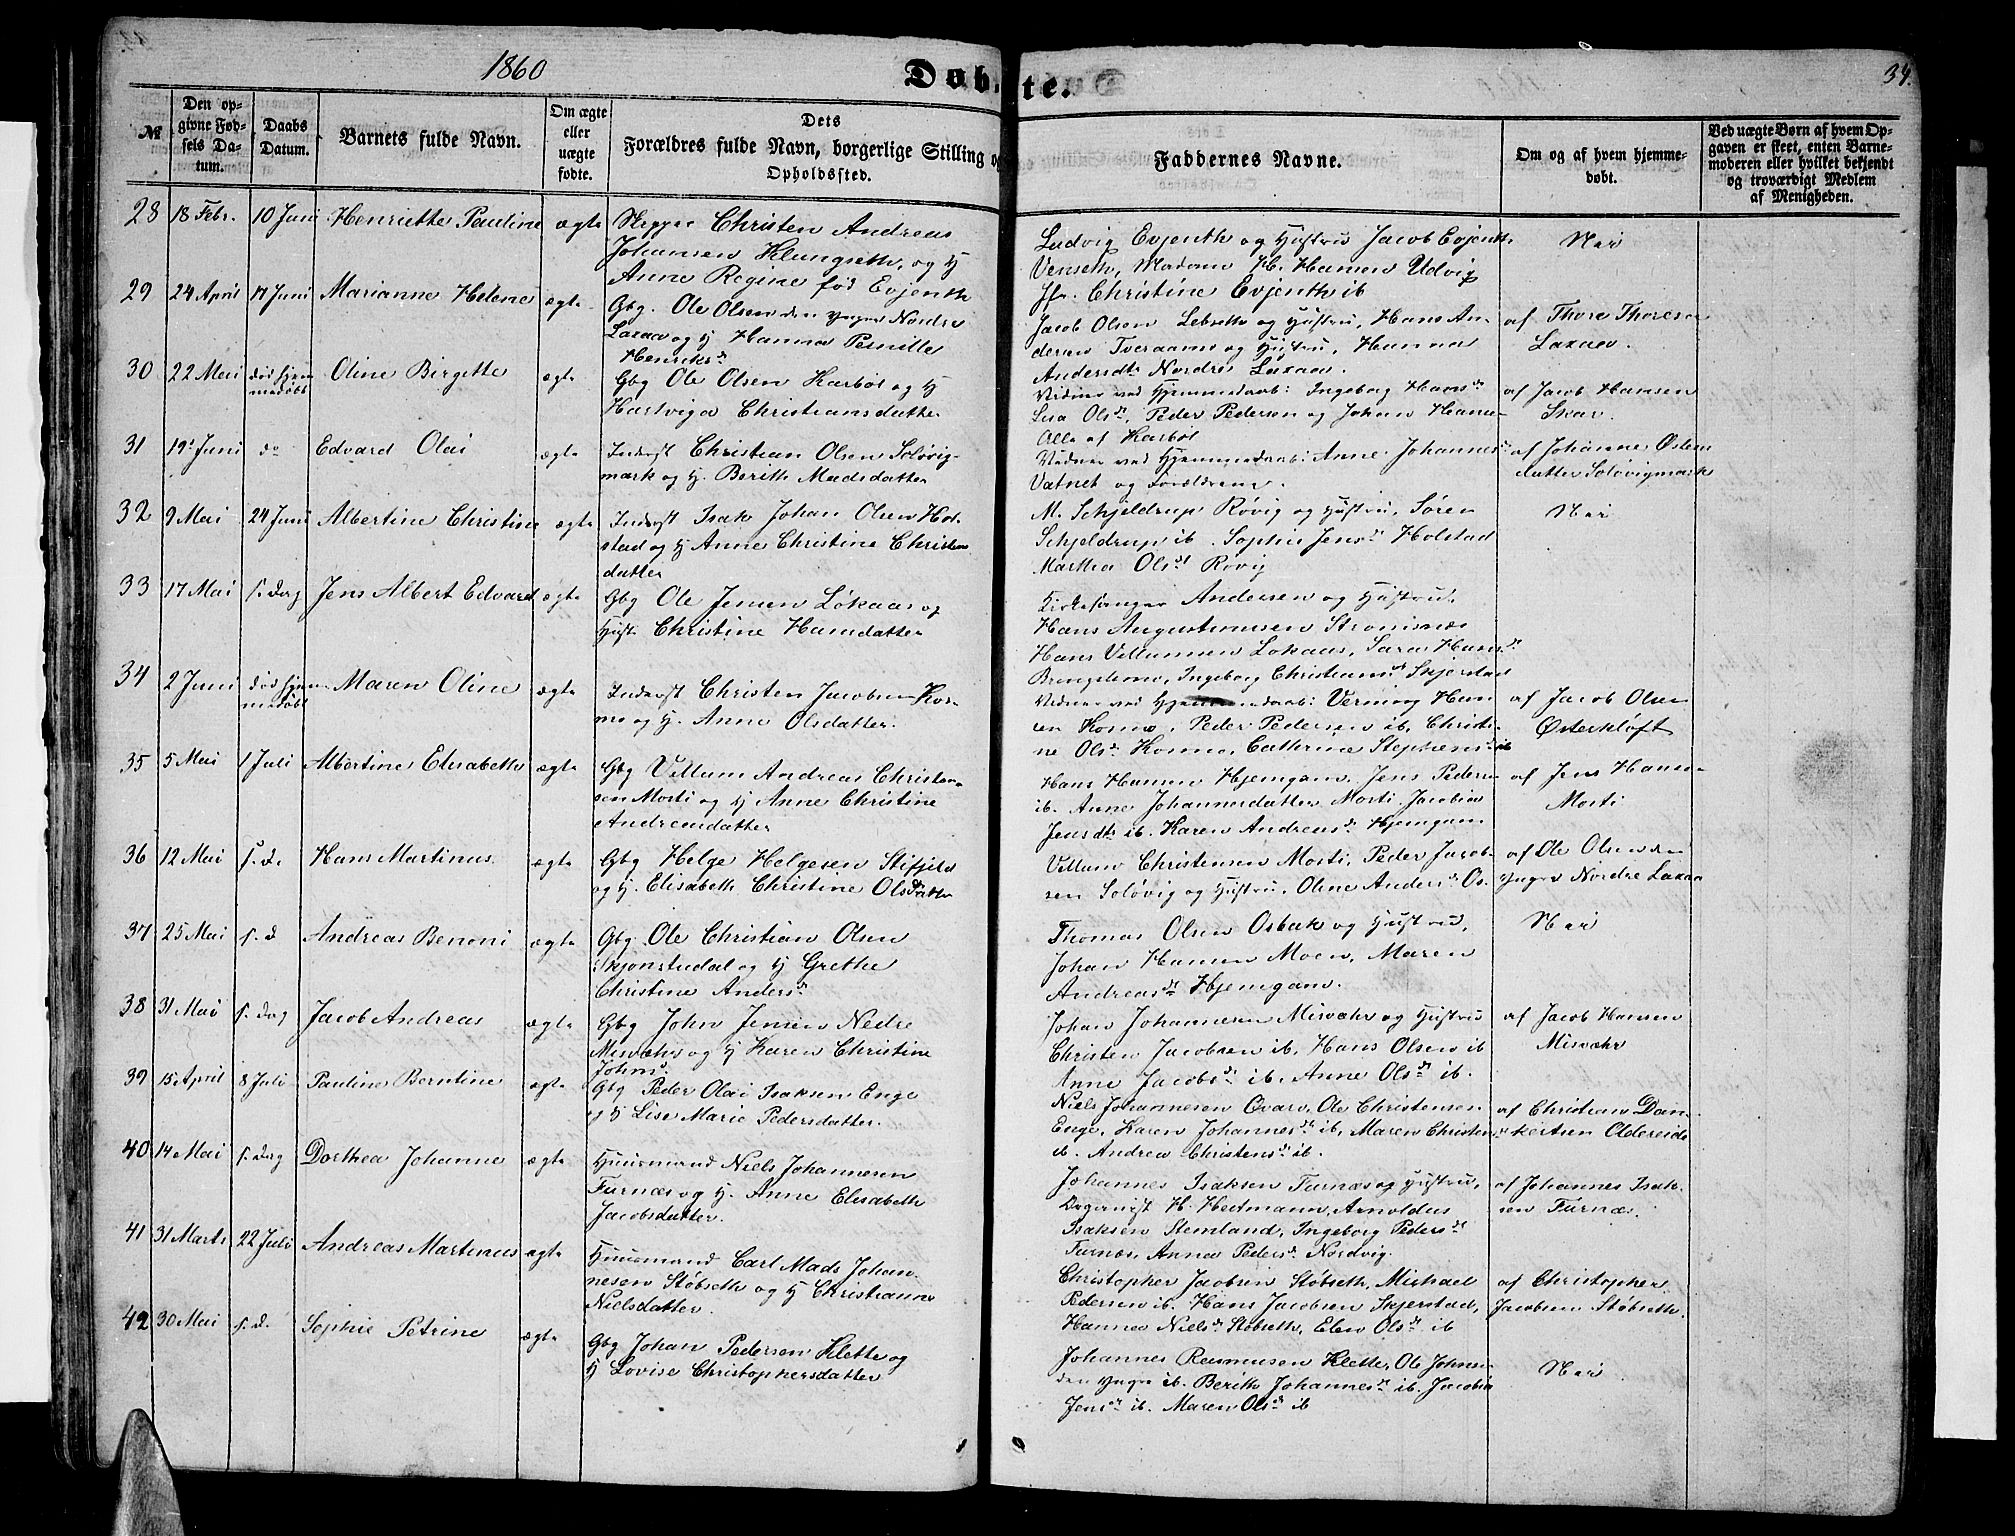 1860
Døbte.
34.
No
Den opgivne Fødsels Datum.
Daabs Datum.
Barnets fulde Navn.
Om ægte eller uægte fødte.
Dets Forældres fulde Navn, borgerlige Stilling og Opholdssted.
Faddernes Navne.
Om og af hvem hjemmedøbt.
Ved uægte Børn af hvem Opgaven er skeet, enten Barnemoderen eller hvilket bekjendt og troværdigt Medlem af Menigheden.
28 18 Febr. 10 Juni Henriette Pauline ægte Skipper Christen Andreas
Johansen Klungseth, og H
Anne Regine fød Evjenth
Ludvig Evjenth og Hustru Jacob Evjenth
Venseth, Madam H. Hansen Udvig
Jfr. Christine Evjenth ib
Nei
29 24 April 17 Juni Marianne Helene ægte Gbg. Ole Olsen den yngre Nordre
Laxaa og H Hanna Pernille
Henriksd.
Jacob Olsen Lebseth og Hustru, Hans An-
dersen Tveraamo og Hustru, Hanna
Andersdtr Nordre Laxaa.
af Thore Thoresen
Laxaa.
30 22 Mai død hjem-
medøbt Oline Birgitte ægte Gbg Ole Olsen Karbøl og H
Hartviga Christiansdatter
Vidner ved Hjemmedaab: Ingeborg Hansd.
Lisa Olsd., Peder Pedersen og Johan Hansen
Alle af Karbøl
af Jacob Hansen
Skar.
31 19 Juni do Edvard Olai ægte Inderst Christian Olsen Soløvig-
mark og H. Berith Madsdatter
Vidner ved Hjemmedaab: Anne Johannesd.
Vatnet og Forældrene.
af Johanne Østens
datter Soløvigmark
32 9 Mai 24 Juni Albertine Christine ægte Inderst Isak Johan Olsen Hol-
stad og H Anne Christine Christens
datter
M. Schjeldrup Røvig og Hustru, Søren
Schjeldrup ib. Sophie Jensd. Holstad
Martha Olsd. Røvig
Nei
33 17 Mai s. Dag Jens Albert Edvard ægte Gbg Ole Jensen Løkaas og
Hust. Christine Hansdatter
Kirkesanger Andersen og Hustru,
Hans Augustinussen Strømsnæs
Hans Villumsen Løkaas, Sara Hansd.
Brengslemo, Ingeborg Christiansd. Skjerstad
34 2 Juni død hjem-
medøbt Maren Oline ægte Inderst Christen Jacobsen Kos-
mo og H. Anne Olsdatter.
Vidner ved Hjemmedaab: Verning Han-
sen Kosmo, Peder Pedersen ib, Christi-
ne Olsd. Kosmo, Cathrine Stephensd. ib
af Jacob Olsen
Østerkløft
35 5 Mai 1 Juli Albertine Elisabeth ægte Gbg Villum Andreas Christen-
sen Mosti og H Anne Christine
Andreasdatter
Hans Hansen Hjemgam, Jens Pedersen
ib. Anne Johannesdatter Mosti, Jacobia
Jensdtr ib. Karen Andreasd. Hjemgam
af Jens Hansen
Mosti
36 12 Mai s. d. Hans Martinus ægte Gbg Helge Helgesen Stifjeld
og H. Elisabeth Christine Olsdatter
Villum Christensen Mosti, Peder Jacob-
sen Soløvig og Hustru, Oline Andersd. Os.
af Ole Olsen den
yngre Nordre Laxaa
37 25 Mai s. d Andreas Benoni ægte Gbg Ole Christian Olsen
Skjønstadal og H Grethe
Christine Andersd.
Thomas Olsen Osbak og Hustru,
Johan Hansen Moen, Maren
Andreasd. Hjemgam.
Nei
38 31 Mai s. Dag Jacob Andreas ægte Gbg John Jensen Nedre
Misvæhr og H Karen Christine
Johnsd.
Johan Johannesen Misvæhr og Hustru
Christen Jacobsen ib, Hans Olsen ib
Anne Jacobsd. ib. Anne Olsd. ib.
af Jacob Hansen
Misvæhr
39 15 April 8 Juli Pauline Berntine ægte Gbg Peder Olai Isaksen Enge
og H Lise Marie Pedersdatter.
Niels Johannesen Qvarv, Ole Christensen
Enge, Karen Johannesd. ib, Maren Christensd.
ib. Andrea Christensd. ib.
af Christian Dan-
kertsen Oldereide
40 14 Mai s. Dag Dorthea Johanne ægte Huusmand Niels Johannesen
Furnæs og H. Anne Elisabeth
Jacobsdatter.
Johannes Isaksen Furnæs og Hustru,
H. Heitmann, Arnoldus
Isaksen Stemland, Ingeborg Pedersd.
Furnæs, Anna Pedersd. Nordvig.
af Johannes Isak-
sen Furnæs.
41 31 Marts 22 Juli Andreas Martinus ægte Huusmand Carl Mads Johan-
nesen Støbseth og H Christianne
Nielsdatter.
Christopher Jacobsen Støbseth, Michael
Pedersen ib. Hans Jacobsen Skjerstad,
Hanna Nielsd. Støbseth, Elen Olsd. ib
af Christopher
Jacobsen Støbseth.
42 30 Mai s. d. Sophie Petrine ægte Gbg Johan Pedersen Klette og
H Lovise Christophersdatter
Johannes Rasmussen Klette, Ole Johnsen
den yngre ib. Berith Johannesd. ib. Jacobia
Jensd. ib. Maren Olsd. ib
Nei